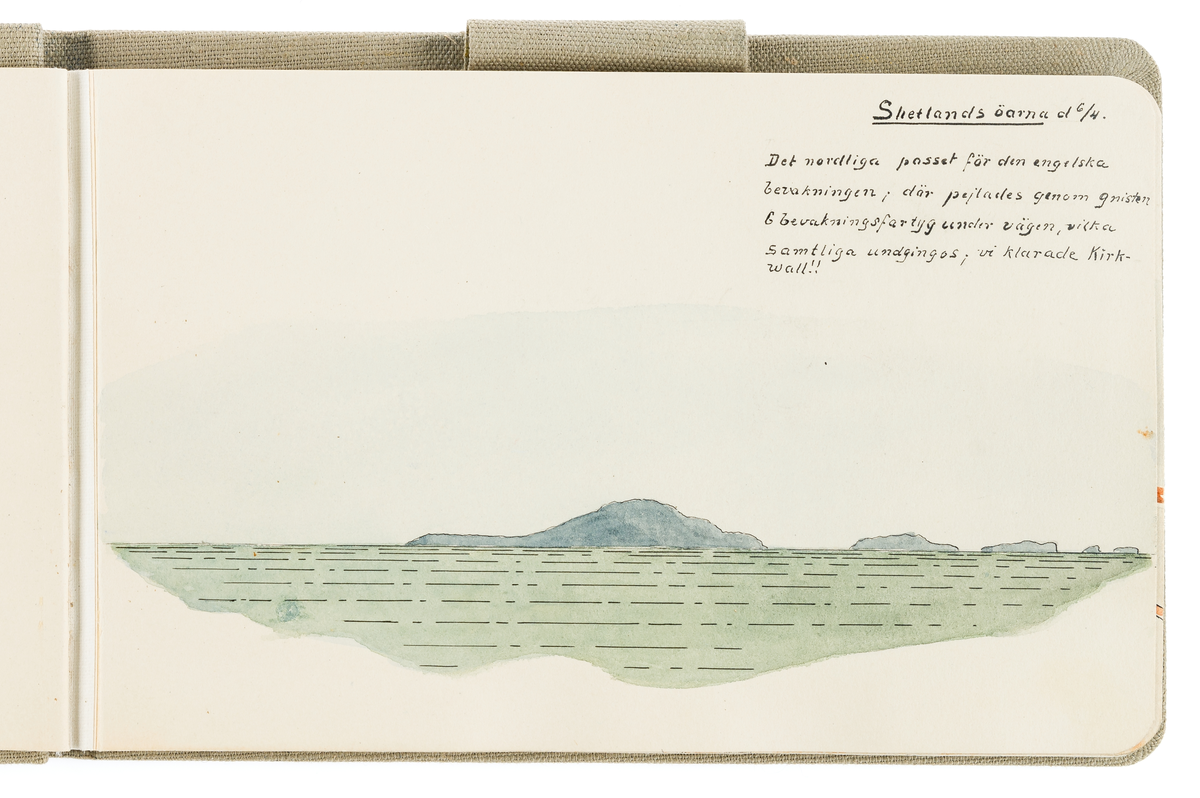 Shetlands öarna d 6/4.
Det nordliga passet för den engelska
bevakningen; där pejlades genom gnisten
6 bevakningsfartyg under vägen, vilka
samtliga undgingos; vi klarade Kirk-
wall!!